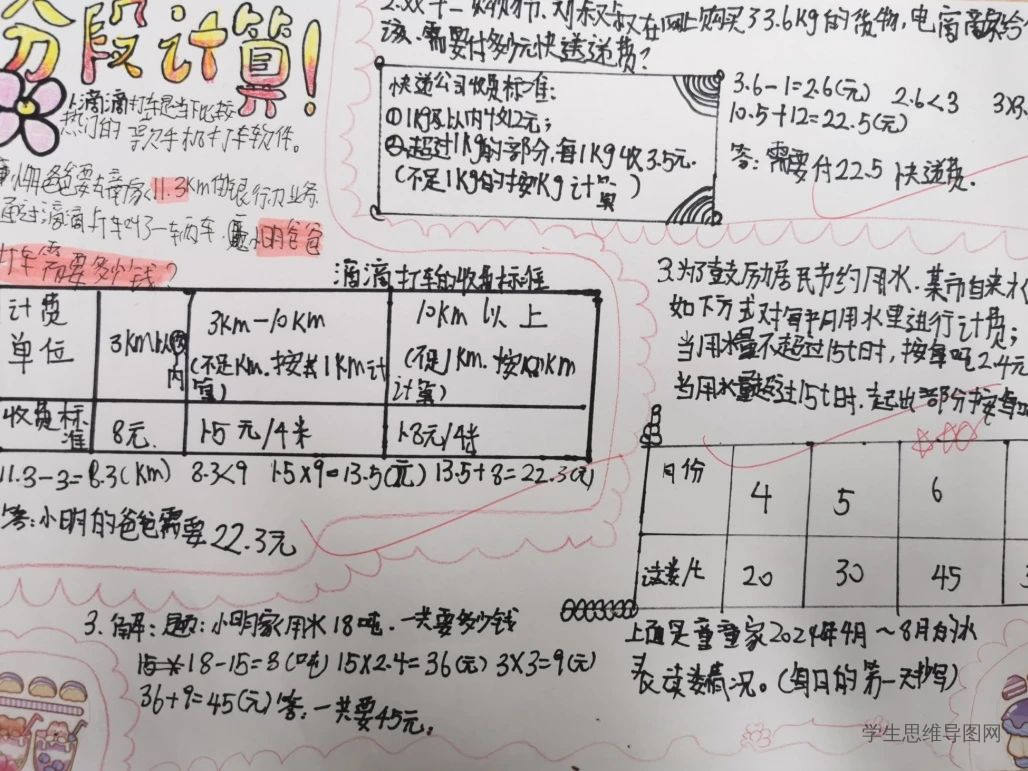 分段计算!
滴滴打车是当下比较
热门的一款手机打车软件。
小明爸爸要去离家11.3Km的银行办业务.
通过滴滴打车叫了一辆车.小明爸爸
打车需要多少钱?
滴滴打车的收费标准
计费单位
3Km以内
3Km-10Km
(不足Km.按其1Km计算)
10Km以上
(不足1Km.按Km计算)
收费标准
8元.
1.5元/千米
1.8元/千米
11.3-3=8.3(Km) 8.3<9 1.5×9=13.5(元) 13.5+8=22.3(元)
答:小明的爸爸需要22.3元
在网上购买33.6Kg的货物,电商
需要付多少元快送递费?
快递公司收费标准:
①1Kg及以内收12元;
②超过1Kg的部分,每1Kg收3.5元.
(不足1Kg的按Kg计算)
3.6-1=2.6(元) 2.6<3
10.5+12=22.5(元)
答:需要付22.5快送费.
3.为了鼓励居民节约用水.某市自来水
如下方式对每月用水里进行计费;
当用水量不超过15t时,按每吨2.4元
当用水量超过15t时.起出部分按每吨
月份 4 5 6
读数/t 20 30 45
上面是童童家2024年4月~8月的水
表读数情况。(每日的第一天抄写)
3.解:题:小明家用水18吨.一共要多少钱
18-15=3(吨) 15×2.4=36(元) 3×3=9(元)
36+9=45(元) 答:一共要45元.
学生思维导图网